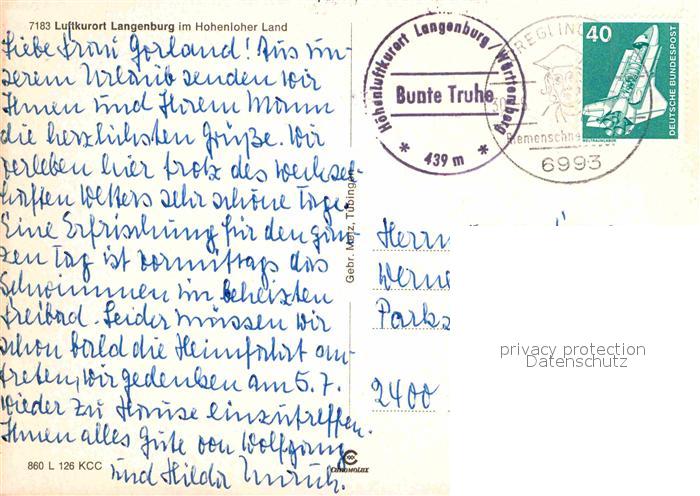 7183 Luftkurort Langenburg im Hohenloher Land
Liebe Frau Gorland! Aus un-
serem Urlaub senden wir
Ihnen und Ihrem Mann
die herzlichsten Grüße. Wir
verleben hier trotz des wechsel-
haften Wetters sehr schöne Tage.
Eine Erfrischung für den gan-
zen Tag ist vormittags das
Schwimmen im beheizten
Freibad. Leider müssen wir
schon bald die Heimfahrt an-
treten, wir gedenken am 5.7.
wieder zu Hause einzutreffen.
Ihnen alles Gute von Wolfgang
und Hilda
860 L 126 KCC
Gebr. Metz, Tübingen
CHROMOLUX
Höhenluftkurort Langenburg/Württemberg
Bunte Truhe
* 439 m *
REGLIN
Riemenschne
6993
40
DEUTSCHE BUNDESPOST
WELTRAUMLABOR
Herrn
Werne
Parks
2400
privacy protection
Datenschutz